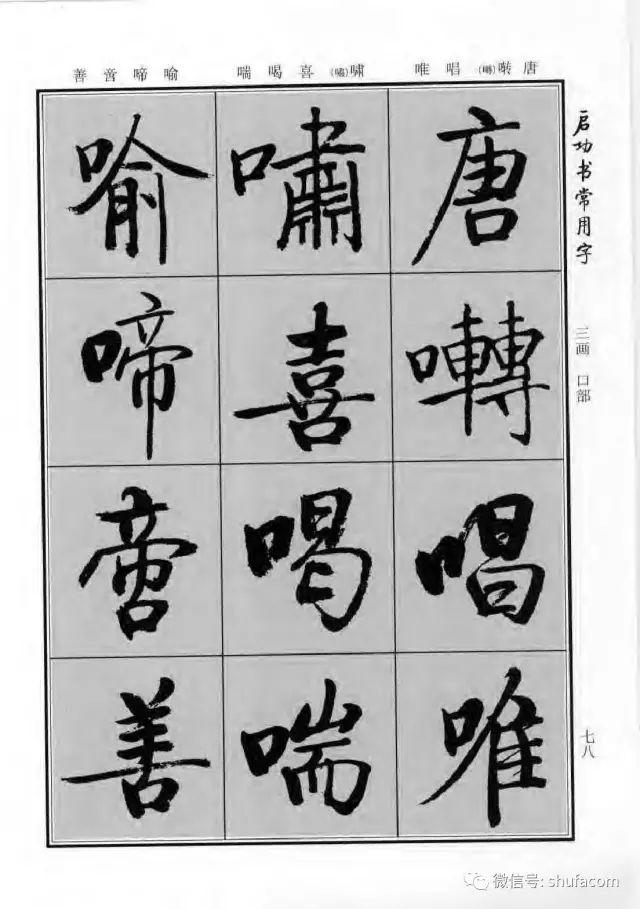 善啻啼喻
喘喝喜(嘯)啸
唯唱(囀)啭唐
启功书常用字
三画 口部
七八
唐
囀
唱
唯
嘯
喜
喝
喘
喻
啼
啻
善
微信号: shufacom